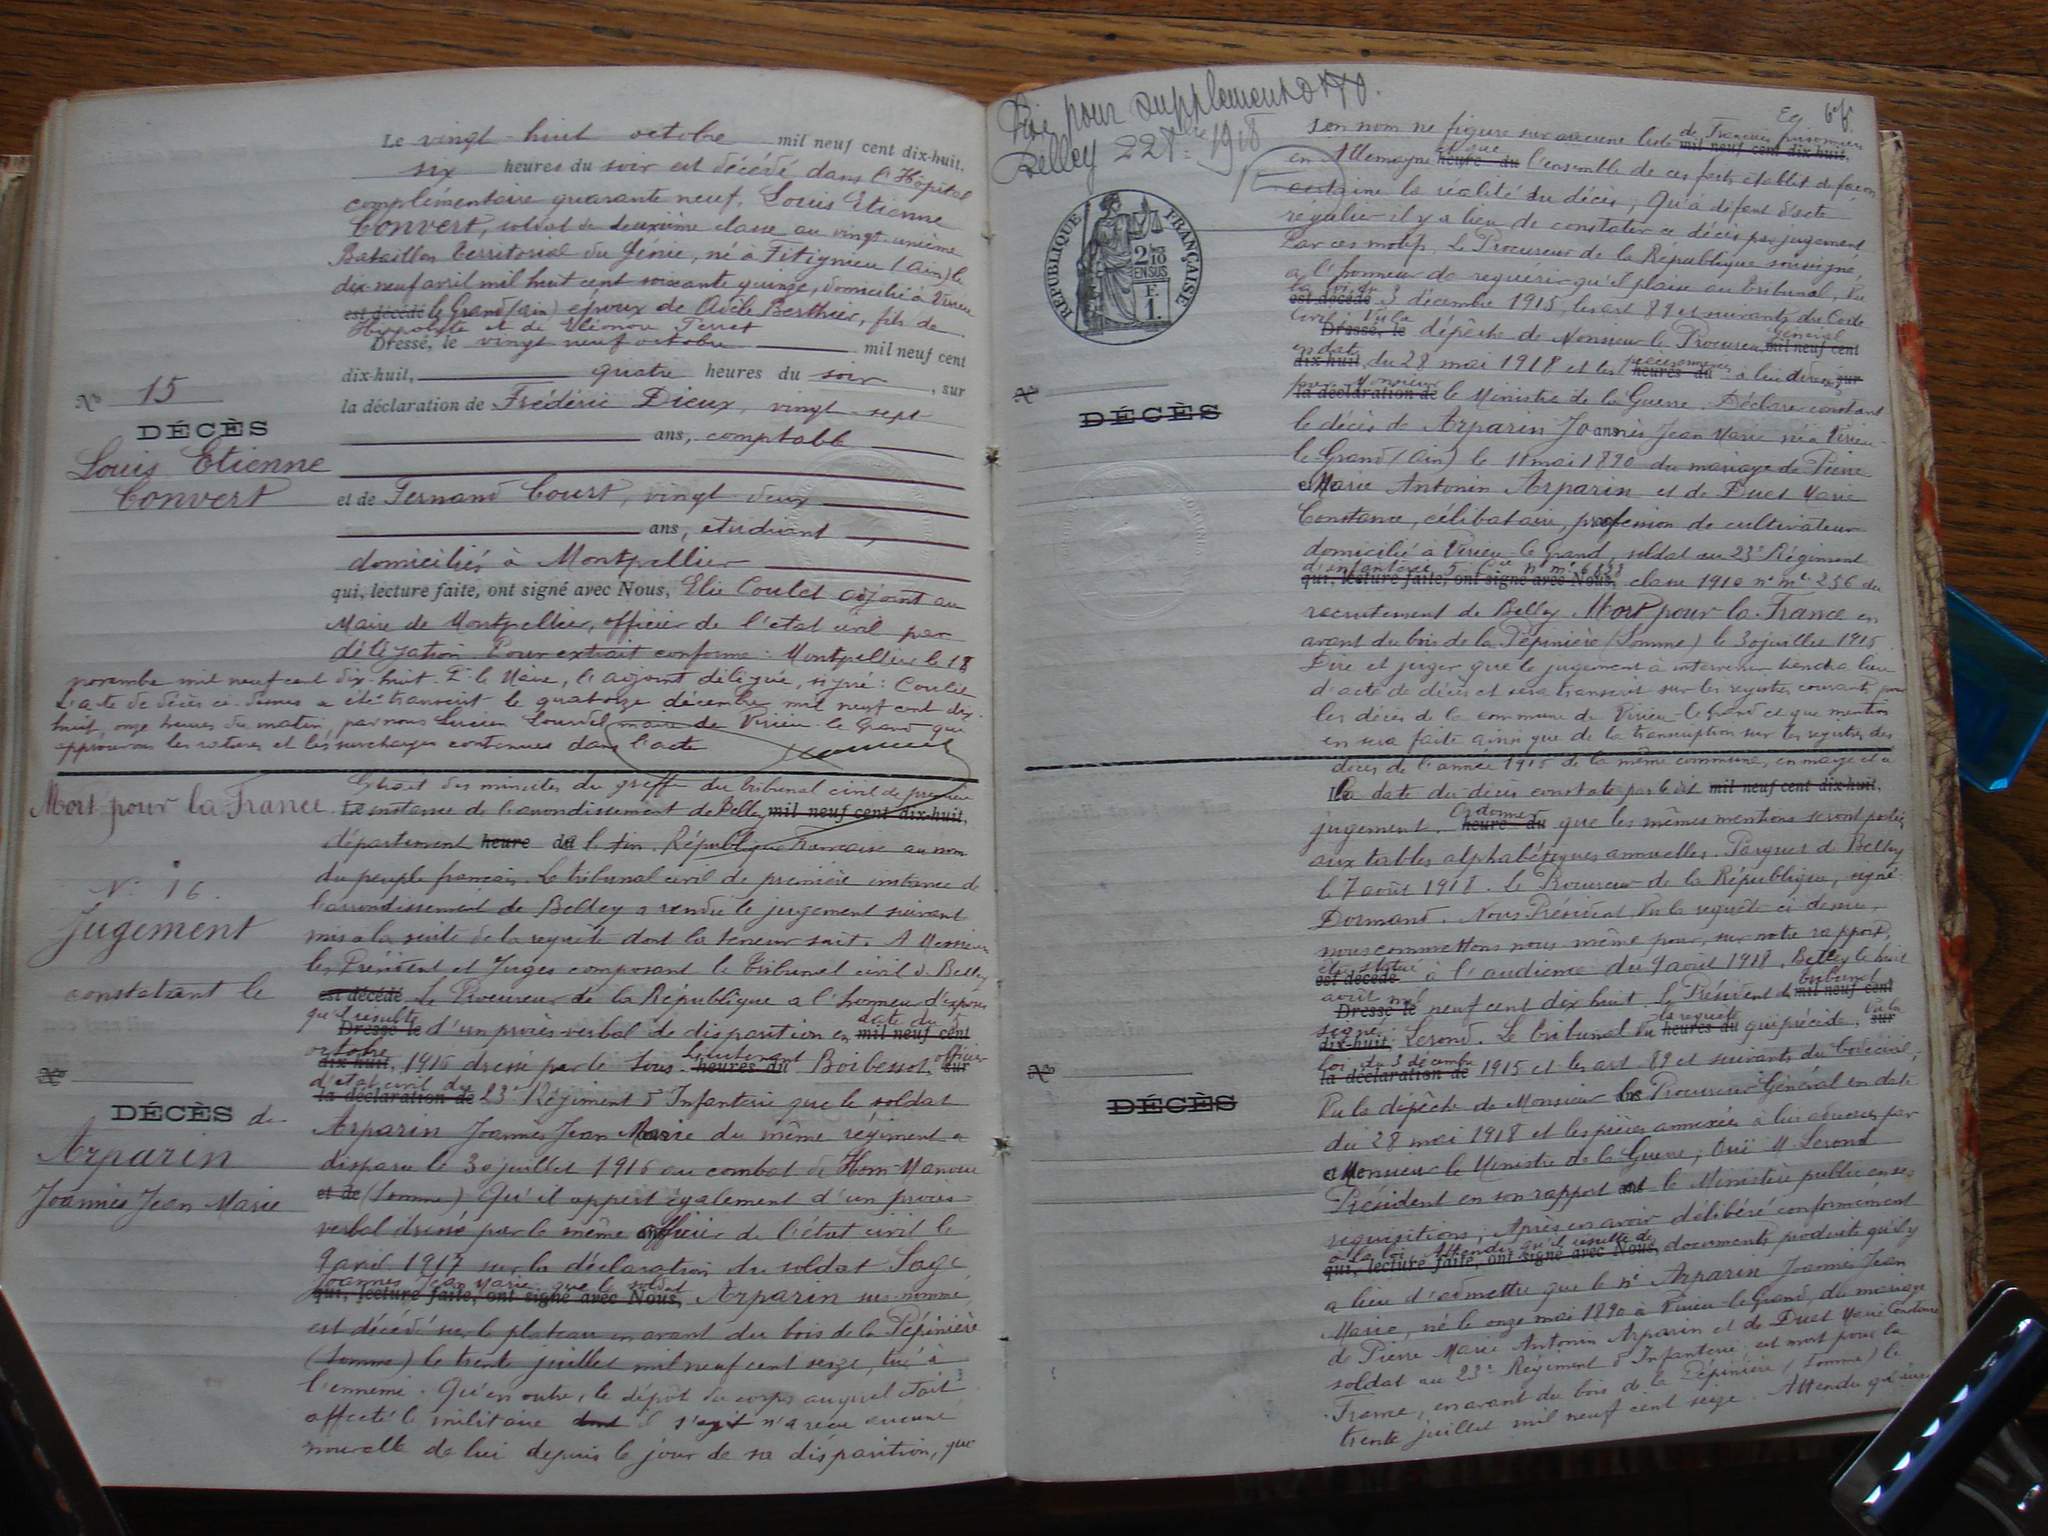 Le vingt-huit octobre mil neuf cent dix-huit,
six heures du soir est décédé dans l'Hôpital
complémentaire quarante neuf, Louis Etienne
Convert, soldat de deuxième classe au vingt-unième
Bataillon territorial du Génie, né à Fitignieu (Ain) le
dix neuf avril mil huit cent soixante quinze, domicilié à Virieu
est décédé le Grand (Ain) époux de Adèle Berthier, fils de
Hyppolyte et de Eléonore Perret
Dressé, le vingt neuf octobre mil neuf cent
dix-huit, quatre heures du soir, sur
la déclaration de Frédéric Dieux, vingt-sept
ans, comptable
et de Fernand Court, vingt deux
ans, étudiant
domiciliés à Montpellier
qui, lecture faite, ont signé avec Nous, Elie Coulet adjoint au
Maire de Montpellier, officier de l'état civil par
délégation Pour extrait conforme : Montpellier le 18
novembre mil neuf cent dix-huit. Pr le Maire, l'adjoint délégué, signé : Coulet
L'acte de décès ci-dessus a été transcrit le quatorze décembre mil neuf cent dix-
huit, onze heures du matin, par nous Lucien Lourdel maire de Virieu-le-Grand qui
approuvons les ratures et les surcharges contenues dans l'acte
No 15
DÉCÈS
Louis Etienne
Convert
Mort pour la France
N° 16.
Jugement
constatant le
No
DÉCÈS de
Arparin
Joannès Jean Marie
Extrait des minutes du greffe du tribunal civil de première
instance de l'arrondissement de Belley mil neuf cent dix-huit,
département heure de l'Ain. République Française au nom
du peuple français. Le tribunal civil de première instance de
l'arrondissement de Belley a rendu le jugement suivant
mis à la suite de la requête dont la teneur suit. A Messieurs
les Président et Juges composant le Tribunal civil de Belley
est décédé Le Procureur de la République a l'honneur d'exposer
qu'il résulte date du 5
Dressé le d'un procès-verbal de disparition en mil neuf cent
octobre Lieutenant officier
dix-huit, 1916 dressé par le Sous heures du Boibessot, sur
d'état civil du
la déclaration de 23e Régiment d'Infanterie que le soldat
Arparin Joannès Jean Marie du même régiment a
disparu le 30 juillet 1916 au combat de Hem-Monacu
et de (Somme) Qu'il appert également d'un procès-
verbal dressé par le même officier de l'état civil le
9 avril 1917 sur la déclaration du soldat Sage
Joannès Jean Marie que le soldat
qui, lecture faite, ont signé avec Nous, Arparin sus-nommé
est décédé sur le plateau en avant du bois de la Pépinière
(Somme) le trente juillet mil neuf cent seize, tué à
l'ennemi. Qu'en outre, le dépôt du corps auquel était
affecté le militaire dont il s'agit n'a reçu aucune
nouvelle de lui depuis le jour de sa disparition, que
Visé pour supplément
Belley 1918
RÉPUBLIQUE FRANÇAISE
2/10 EN SUS
F. 1.
No
DÉCÈS
No
DÉCÈS
de Français prisonniers
son nom ne figure sur aucune liste mil neuf cent dix-huit,
et que
en Allemagne heure du l'ensemble de ces faits établit de façon
certaine la réalité du décès, Qu'à défaut d'acte
régulier il y a lieu de constater ce décès par jugement
Par ces motifs, Le Procureur de la République soussigné,
a l'honneur de requérir qu'il plaise au tribunal, Vu
la loi du
est décédé 3 décembre 1915, les art 89 et suivants du Code
Civil; Vu la général
Dressé, le dépêche de Monsieur le Procureur mil neuf cent
en date pièces annexées
dix-huit, du 28 mai 1918 et les heures du à lui adressées sur
par Monsieur
la déclaration de le Ministre de la Guerre. Déclarer constant
le décès de Arparin Joannès Jean Marie né à Virieu-
le-Grand (Ain) le 11 mai 1890 du mariage de Pierre
Marie Antonin Arparin et de Duet Marie
Constance, célibataire, profession de cultivateur
domicilié à Virieu-le-Grand, soldat au 23e Régiment
d'infanterie 5e Cie n° mle 6653
qui, lecture faite, ont signé avec Nous, classe 1910 n° mle 256 du
recrutement de Belley Mort pour la France en
avant du bois de la Pépinière (Somme) le 30 juillet 1916
Dire et juger que le jugement à intervenir tiendra lieu
d'acte de décès et sera transcrit sur les registres courants pour
les décès de la commune de Virieu-le-Grand et que mention
en sera faite ainsi que de la transcription sur les registres des
décès de l'année 1916 de la même commune, en marge et à
la date du décès constaté par le dit mil neuf cent dix-huit,
Ordonner
jugement. heure du que les mêmes mentions seront portées
aux tables alphabétiques annuelles. Parquet de Belley
le 7 août 1918. Le Procureur de la République, signé
Dormand. Nous Président, Vu la requête ci-dessus,
nous commettons nous même pour, sur notre rapport,
être statué
est décédé à l'audience du 9 août 1918. Belley le huit
août mil tribunal
Dressé le neuf cent dix huit. Le Président du mil neuf cent
signé : la requête Vu la
dix-huit, Lerond. Le tribunal Vu heures du qui précède, sur
loi du 3 décembre
la déclaration de 1915 et les art 89 et suivants du Code civil,
Vu la dépêche de Monsieur le Procureur Général en date
du 28 mai 1918 et les pièces annexées à lui adressées par
Monsieur le Ministre de la Guerre, Ouï M Lerond
Président en son rapport et le Ministère public en ses
requisitions, Après en avoir délibéré conformément
à la loi Attendu qu'il résulte des
qui, lecture faite, ont signé avec Nous, documents produits qu'il y
a lieu d'admettre que le né Arparin Joannès Jean
Marie, né le onze mai 1890 à Virieu-le-Grand, du mariage
de Pierre Marie Antonin Arparin et de Duet Marie Constance
soldat au 23e Régiment d'Infanterie est mort pour la
France, en avant du bois de la Pépinière (Somme) le
trente juillet mil neuf cent seize. Attendu qu'il